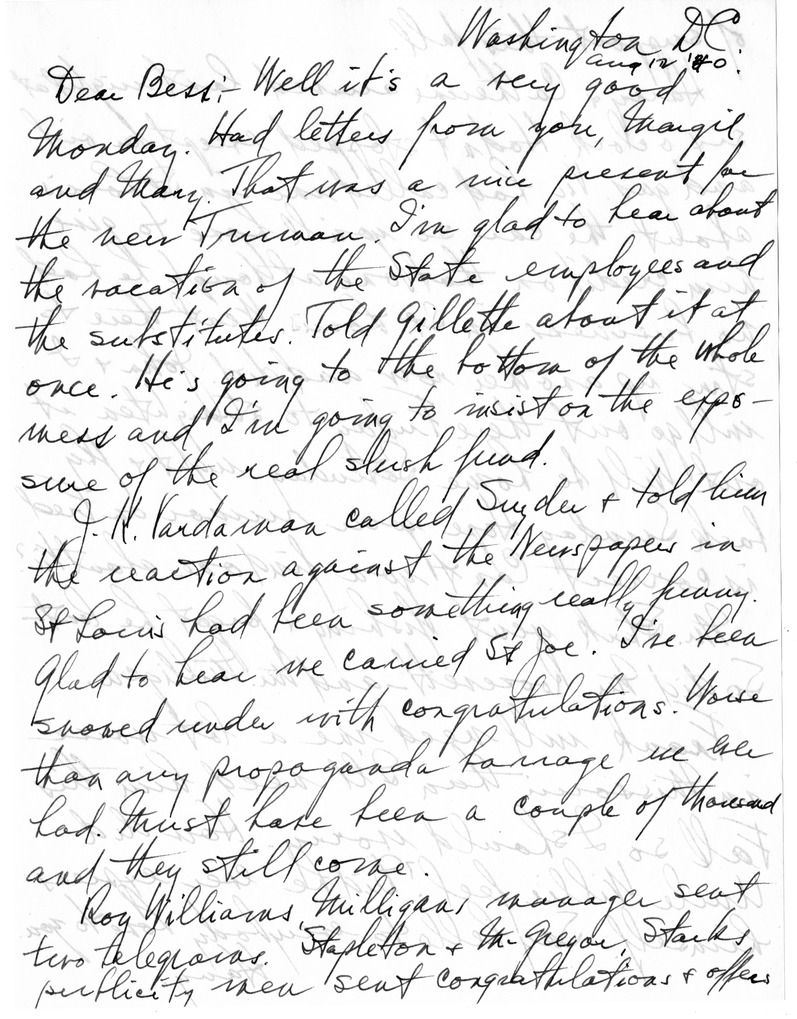 Washington D.C.
Aug 12 '40.
Dear Bess:- Well it's a very good
Monday. Had letters from you, Margie
and Mary. That was a nice present for
the new Truman. I'm glad to hear about
the vacation of the State employees and
the substitutes. Told Gillette about it at
once. He's going to the bottom of the whole
mess and I'm going to insist on the expo-
sure of the real slush fund.
J.K. Vardaman called Snyder & told him
the reaction against the Newspapers in
St Louis had been something really funny.
Glad to hear we carried St Joe. I've been
snowed under with congratulations. Worse
than any propaganda barrage we ever
had. Must have been a couple of thousand
and they still come.
Roy Williams, Milligans manager sent
two telegrams. Stapleton & McGregor, Starks
publicity men sent congratulations & offers